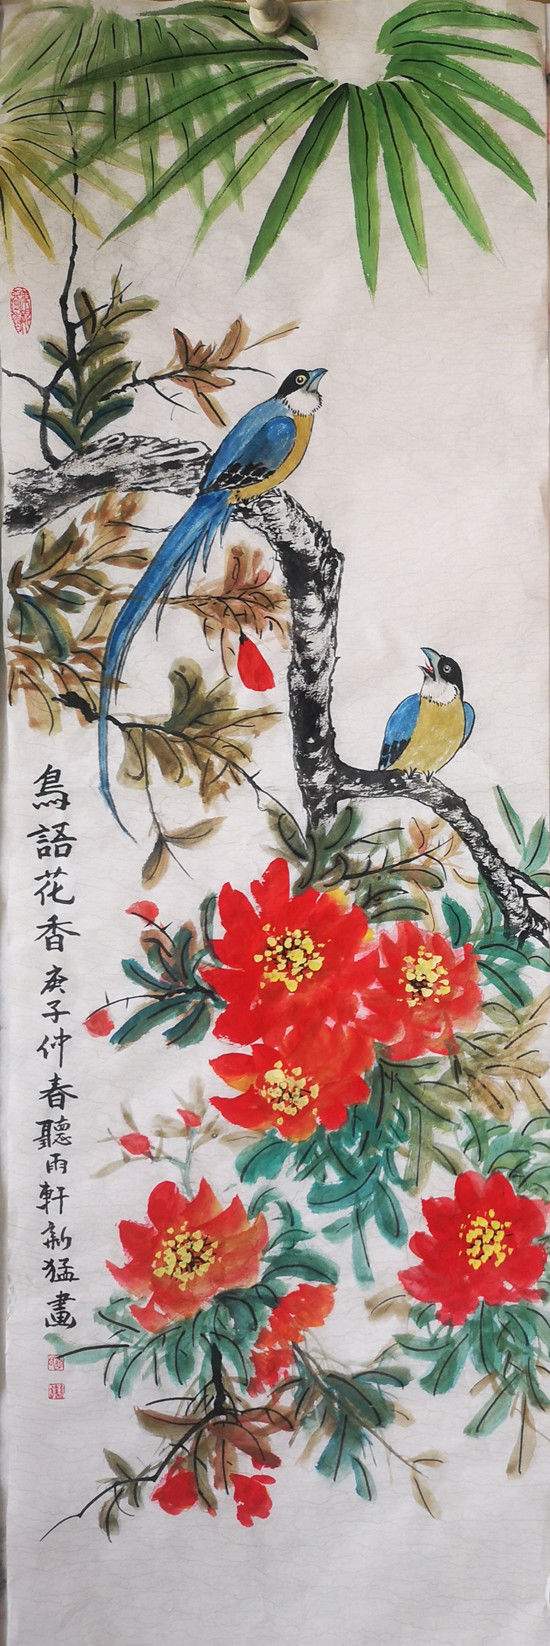 鳥語花香 庚子仲春聽雨軒新猛畫